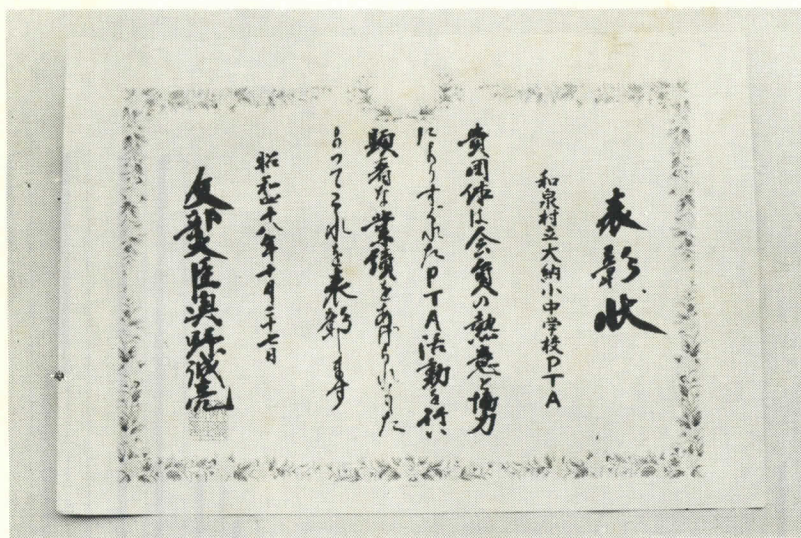 表彰状
和泉村立大納小中学校PTA
貴団体は会員の熱意と協力
によりすぐれたPTA活動を行い
顕著な業績をあげられました
よってこれを表彰します
昭和四十八年十月二十七日
文部大臣奥野誠亮